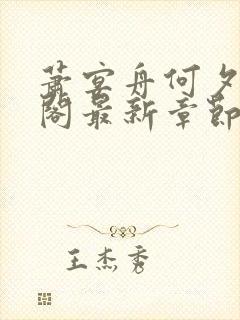 萧宴舟何夕
阁最新章节
王杰秀